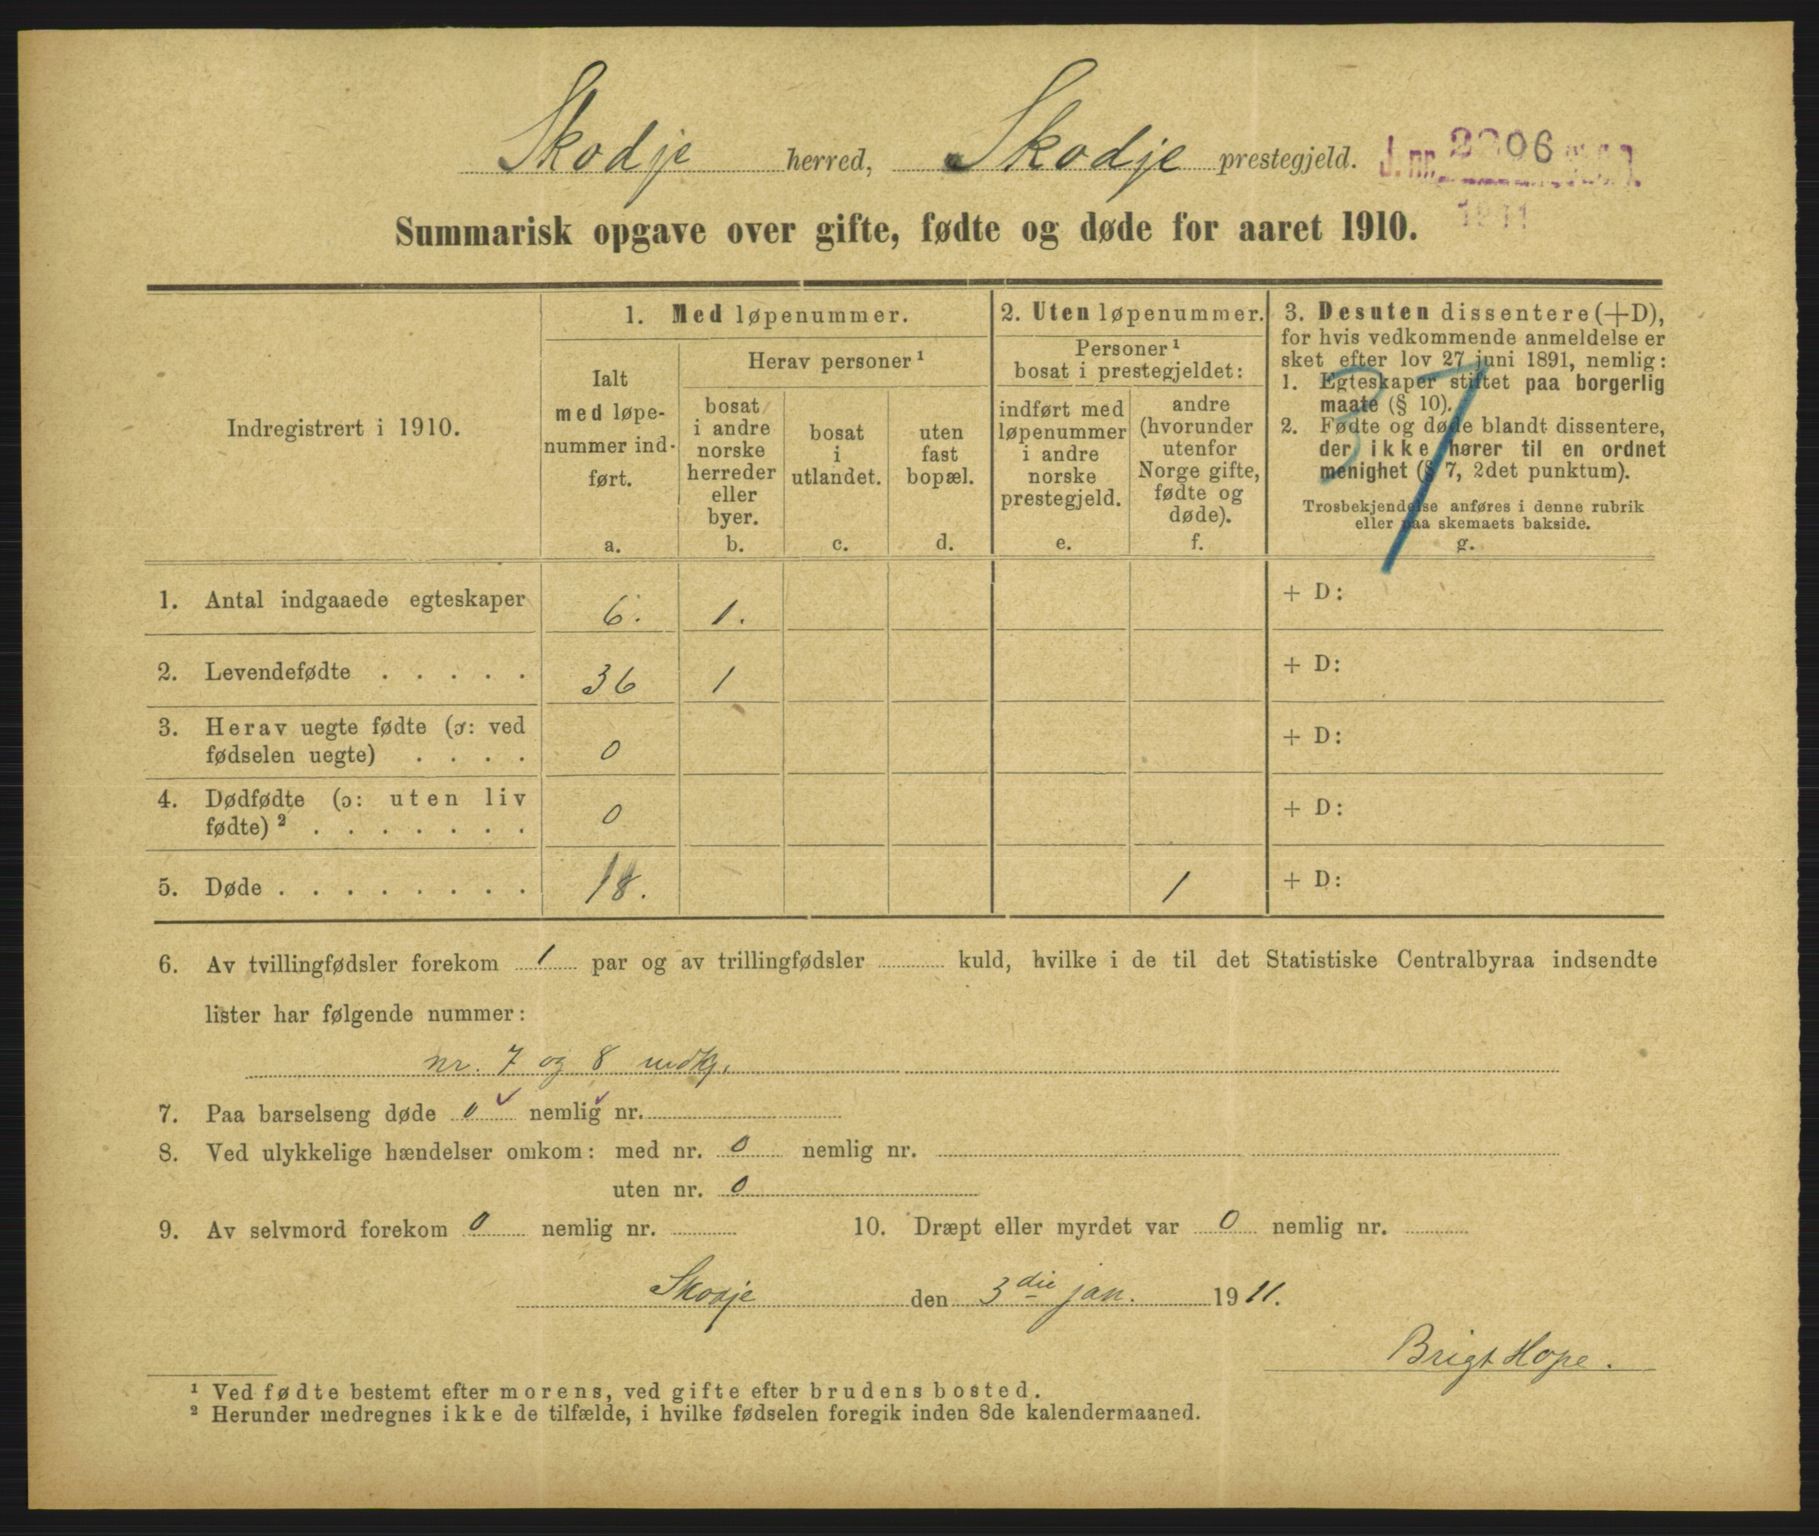 Skodje herred, Skodje prestegjeld. J. nr. 2206
1911
Summarisk opgave over gifte, fødte og døde for aaret 1910.
Indregistrert i 1910.
1. Med løpenummer.
Ialt
med løpe-
nummer ind-
ført.
a.
Herav personer ¹
bosat
i andre
norske
herreder
eller
byer.
b.
bosat
i
utlandet.
c.
uten
fast
bopæl.
d.
2. Uten løpenummer.
Personer ¹
bosat i prestegjeldet:
indført med
løpenummer
i andre
norske
prestegjeld.
e.
andre
(hvorunder
utenfor
Norge gifte,
fødte og
døde).
f.
3. Desuten dissentere (+D),
for hvis vedkommende anmeldelse er
sket efter lov 27 juni 1891, nemlig:
1. Egteskaper stiftet paa borgerlig
maate (§ 10).
2. Fødte og døde blandt dissentere,
der ikke hører til en ordnet
menighet (§ 7, 2det punktum).
Trosbekjendelse anføres i denne rubrik
eller paa skemaets bakside.
g.
37
1. Antal indgaaede egteskaper 6. 1. + D:
2. Levendefødte . . . . . 36 1 + D:
3. Herav uegte fødte (ɔ: ved
fødselen uegte) . . . . 0 + D:
4. Dødfødte (ɔ: uten liv
fødte) ² . . . . . . . 0 + D:
5. Døde . . . . . . . . 18. 1 + D:
6. Av tvillingfødsler forekom 1 par og av trillingfødsler kuld, hvilke i de til det Statistiske Centralbyraa indsendte
lister har følgende nummer:
nr. 7 og 8 mdkj.
7. Paa barselseng døde 0 nemlig nr.
8. Ved ulykkelige hændelser omkom: med nr. 0 nemlig nr.
uten nr. 0
9. Av selvmord forekom 0 nemlig nr. 10. Dræpt eller myrdet var 0 nemlig nr.
Skodje den 3die jan. 1911.
Brigt Hope.
¹ Ved fødte bestemt efter morens, ved gifte efter brudens bosted.
² Herunder medregnes ikke de tilfælde, i hvilke fødselen foregik inden 8de kalendermaaned.